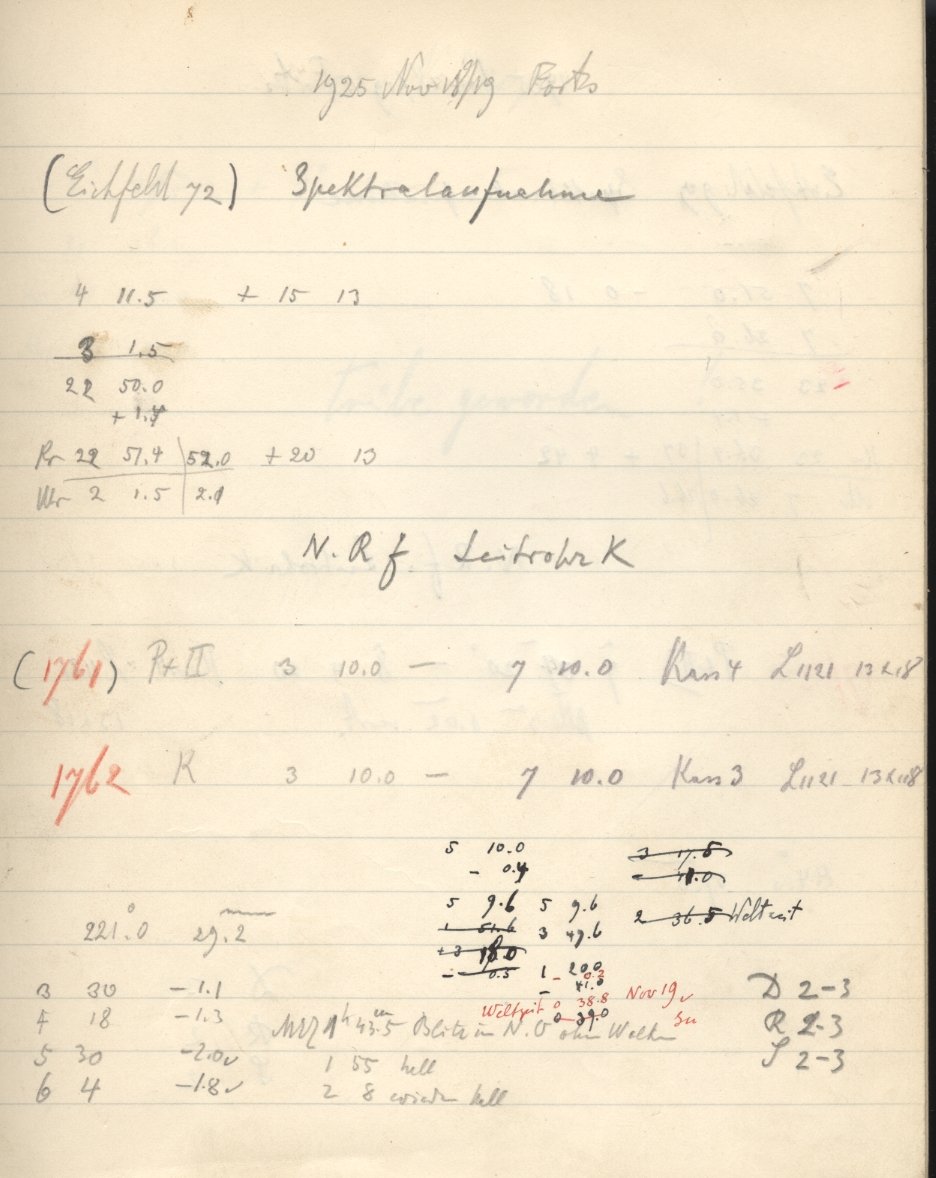 1925 Nov 18/19 Forts
(Eichfeld 72) Spektralaufnahme
4 11.5 + 15 13
3 1.5
22 50.0
+ 1.4
Pr 22 51.4 52.0 + 20 13
Uhr 2 1.5 2.1
N. R f Leitrohr K
(1761) P+II 3 10.0 — 7 10.0 Kass 4 L1121 13 X 18
1762 K 3 10.0 — 7 10.0 Kass 3 L1121 13 X 18
5 10.0 3 17.5
- 0.4
5 9.6 5 9.6 2 36.5 Weltzeit
221.0 29.2
1 51.6 3 49.6
- 0.5 1 20.0
- 0.2
3 30 -1.1 - 41.0 D 2-3
Weltzeit 0 38.8 Nov 19
4 18 -1.3 MEZ 1h 43.5m Blitz in N.O ohne Wolken R 2-3
0 39.0
5 30 -2.0 1 55 hell S 2-3
6 4 -1.8 2 8 wieder hell